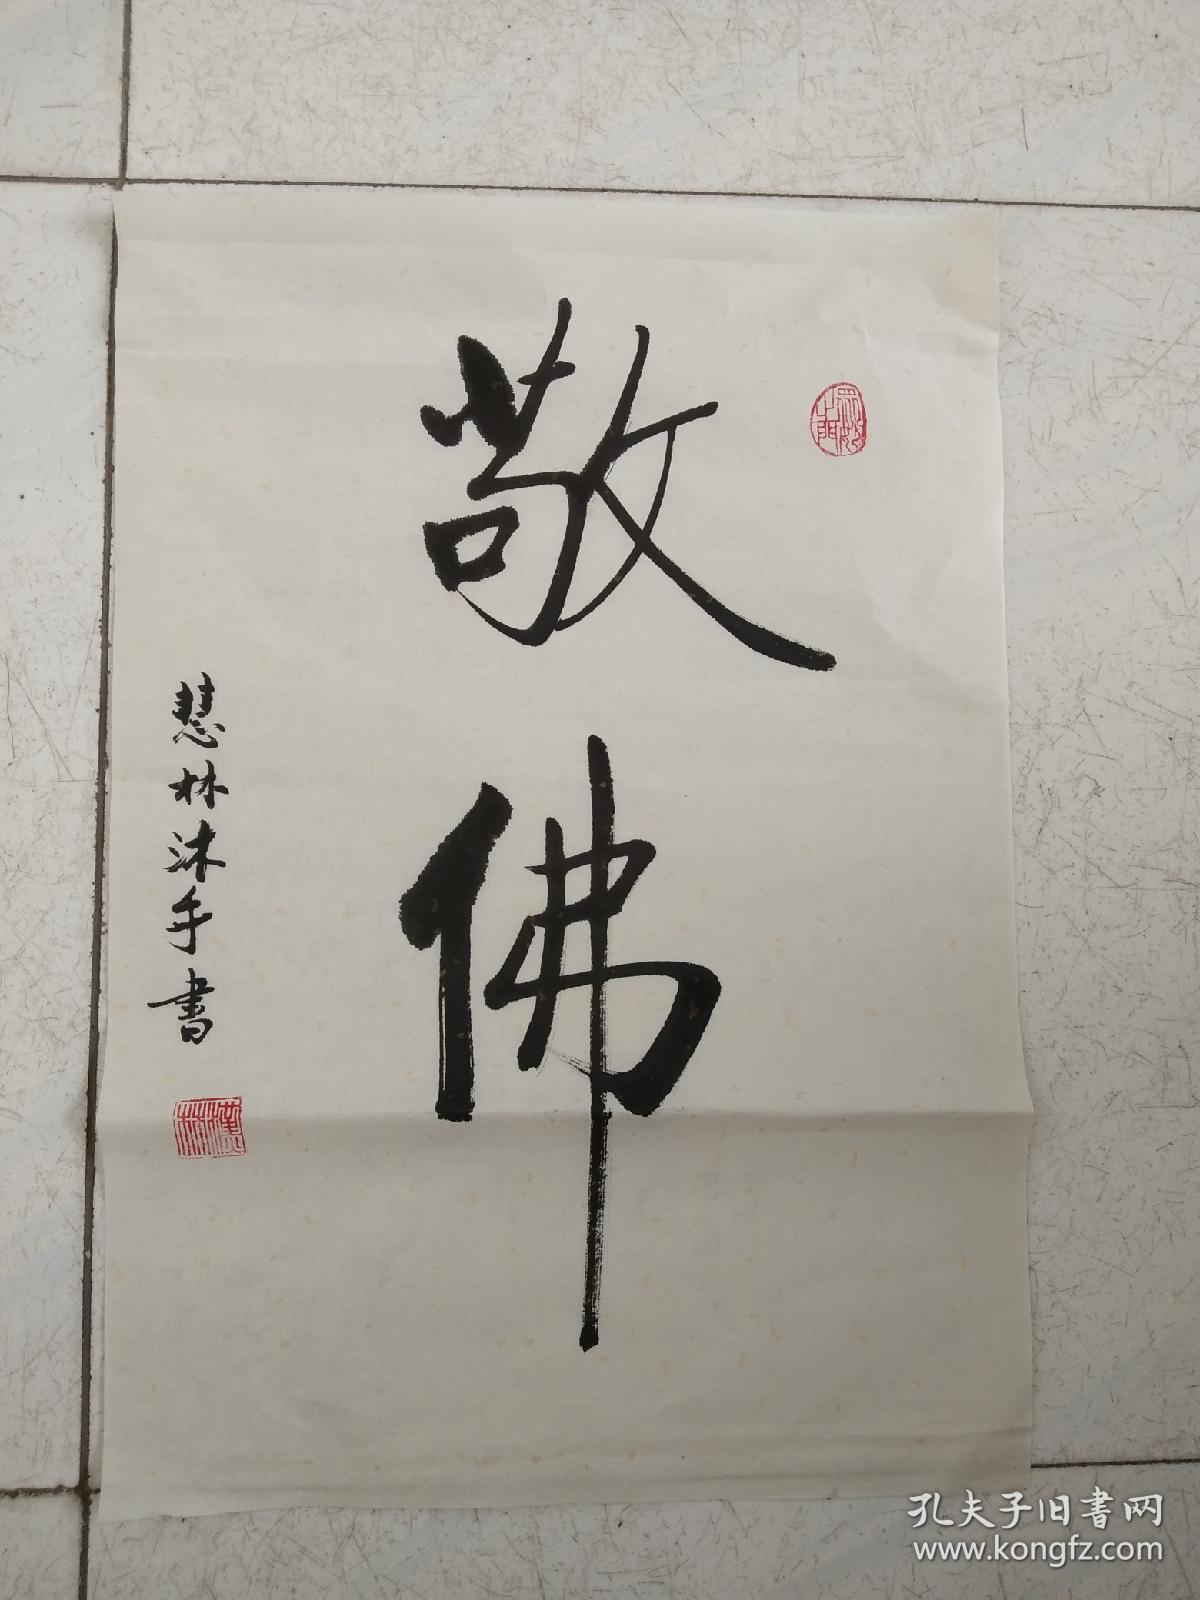 敬佛
慧林沐手書
众妙之門
孔夫子旧书网
www.kongfz.com